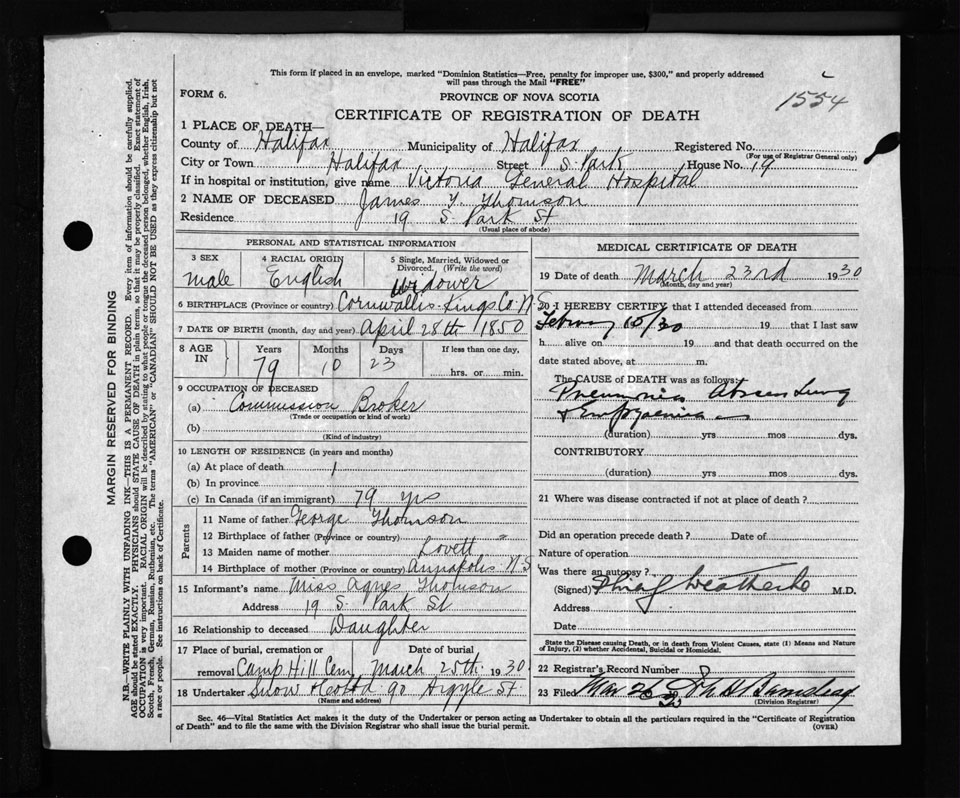 This form if placed in an envelope, marked "Dominion Statistics—Free, penalty for improper use, $300," and properly addressed
will pass through the Mail "FREE"
FORM 6.
PROVINCE OF NOVA SCOTIA
1554
CERTIFICATE OF REGISTRATION OF DEATH
1 PLACE OF DEATH—
County of Halifax Municipality of Halifax Registered No.
(For use of Registrar General only)
City or Town Halifax Street S. Park House No. 19
If in hospital or institution, give name Victoria General Hospital
2 NAME OF DECEASED James Y. Thomson
Residence 19 S Park St
(Usual place of abode)
PERSONAL AND STATISTICAL INFORMATION
3 SEX 4 RACIAL ORIGIN 5 Single, Married, Widowed or Divorced. (Write the word)
male English Widower
6 BIRTHPLACE (Province or country) Cornwallis Kings Co. N S
7 DATE OF BIRTH (month, day and year) April 28th 1850
8 AGE IN Years Months Days If less than one day,
79 10 23 hrs. or min.
9 OCCUPATION OF DECEASED
(a) Commission Broker
(Trade or occupation or kind of work)
(b)
(Kind of industry)
10 LENGTH OF RESIDENCE (in years and months)
(a) At place of death 1
(b) In province
(c) In Canada (if an immigrant) 79 yrs
Parents
11 Name of father George Thomson
12 Birthplace of father (Province or country) "
13 Maiden name of mother Lovett
14 Birthplace of mother (Province or country) Annapolis N.S
15 Informant's name Miss Agnes Thomson
Address 19 S. Park St
16 Relationship to deceased Daughter
17 Place of burial, cremation or removal Date of burial
Camp Hill Cem March 25th 1930
18 Undertaker Snow & Co Ltd 90 Argyle St
(Name and address)
MEDICAL CERTIFICATE OF DEATH
19 Date of death March 23rd 1930
(Month, day and year)
20 I HEREBY CERTIFY that I attended deceased from
15/30 19 that I last saw
h alive on 19 and that death occurred on the
date stated above, at m.
The CAUSE OF DEATH was as follows:
Pneumonia Abscess Lung
& Empyaemia
(duration) yrs mos dys.
CONTRIBUTORY
(duration) yrs mos dys.
21 Where was disease contracted if not at place of death?
Did an operation precede death? Date of
Nature of operation
Was there an autopsy?
(Signed) M.D.
Address
Date
State the Disease causing Death, or in death from Violent Causes, state (1) Means and Nature
of Injury, (2) whether Accidental, Suicidal or Homicidal.
22 Registrar's Record Number
23 Filed Mar 26
(Division Registrar)
Sec. 46—Vital Statistics Act makes it the duty of the Undertaker or person acting as Undertaker to obtain all the particulars required in the "Certificate of Registration
of Death" and to file the same with the Division Registrar who shall issue the burial permit. (OVER)
MARGIN RESERVED FOR BINDING
N.B.—WRITE PLAINLY WITH UNFADING INK—THIS IS A PERMANENT RECORD. Every item of information should be carefully supplied.
AGE should be stated EXACTLY. PHYSICIANS should STATE CAUSE OF DEATH in plain terms, so that it may be properly classified. Exact statement of
OCCUPATION is very important. RACIAL ORIGIN will be described by stating to what people or tongue the deceased person belonged, whether English, Irish,
Scotch, French, German, Russian, Ruthenian, etc. The terms "AMERICAN" or "CANADIAN" SHOULD NOT BE USED as they express citizenship but not
a race or people. See instructions on back of Certificate.